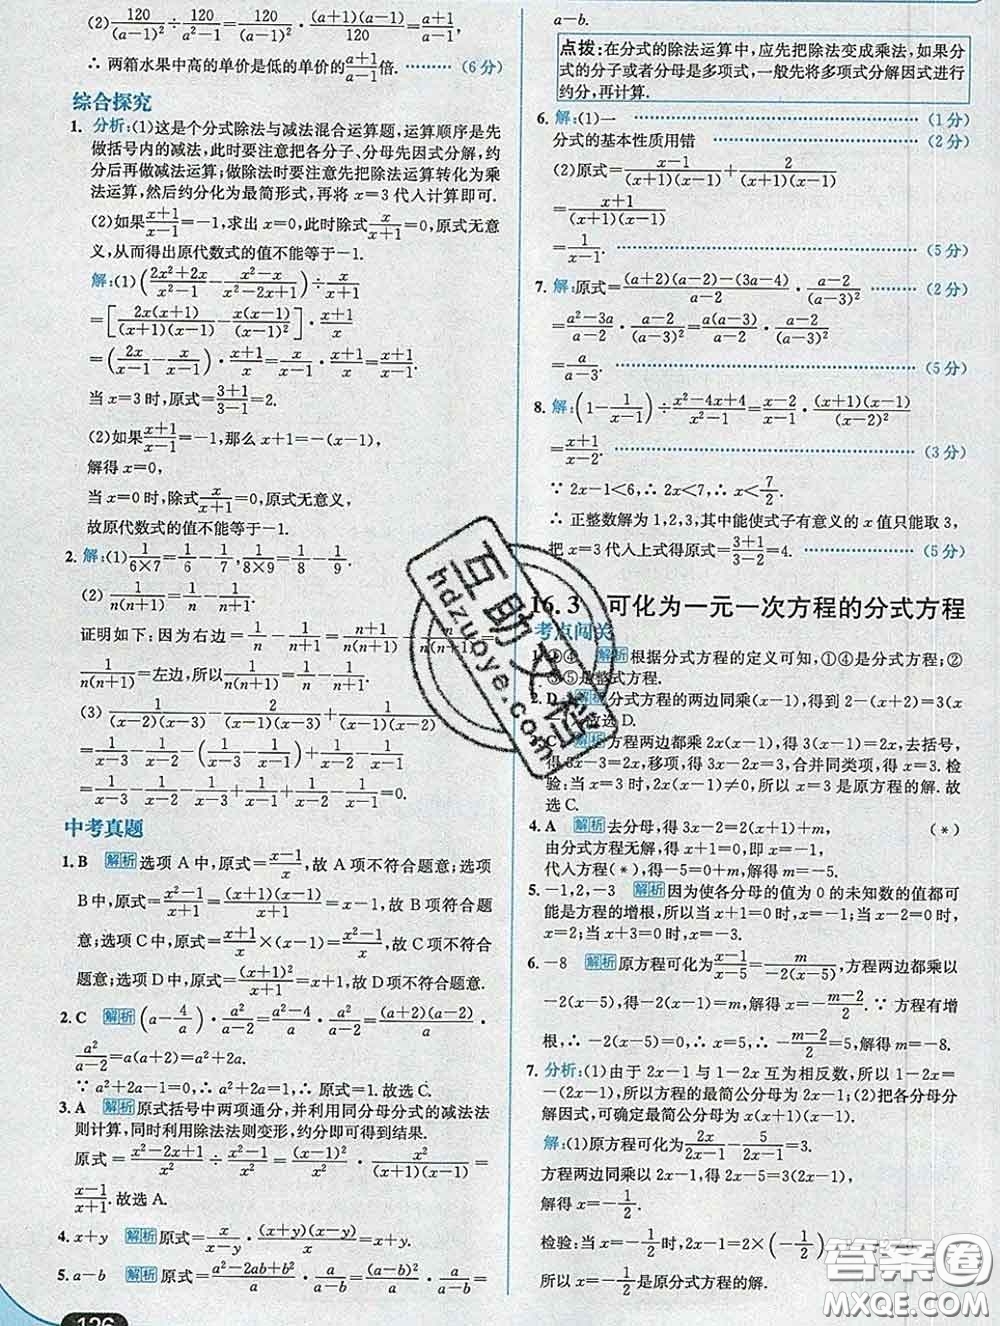 (2) 120/(a-1)² ÷ 120/(a²-1) = 120/(a-1)² · (a+1)(a-1)/120 = (a+1)/(a-1),
∴ 两箱水果中高的单价是低的单价的(a+1)/(a-1)倍. ……… (6分)
综合探究
1. 分析:(1)这是个分式除法与减法混合运算题,运算顺序是先
做括号内的减法,此时要注意把各分子、分母先因式分解,约
分后再做减法运算;做除法时要注意先把除法运算转化为乘
法运算,然后约分化为最简形式,再将 x=3 代入计算即可.
(2)如果(x+1)/(x-1)=-1,求出 x=0,此时除式x/(x+1)=0,原式无意
义,从而得出原代数式的值不能等于-1.
解:(1)((2x²+2x)/(x²-1) - (x²-x)/(x²-2x+1)) ÷ x/(x+1)
=[2x(x+1)/((x+1)(x-1)) - x(x-1)/(x-1)²] · (x+1)/x
=(2x/(x-1) - x/(x-1)) · (x+1)/x = x/(x-1) · (x+1)/x = (x+1)/(x-1).
当 x=3 时,原式=(3+1)/(3-1)=2.
(2)如果(x+1)/(x-1)=-1,那么 x+1=-(x-1),
解得 x=0,
当 x=0 时,除式x/(x+1)=0,原式无意义,
故原代数式的值不能等于-1.
2. 解:(1)1/(6×7)=1/6-1/7,1/(8×9)=1/8-1/9.
(2) 1/(n(n+1))=1/n-1/(n+1).
证明如下:因为右边=1/n-1/(n+1)=(n+1)/(n(n+1))-n/(n(n+1))=
1/(n(n+1))=左边,所以1/(n(n+1))=1/n-1/(n+1).
(3) 1/((x-2)(x-3))-2/((x-1)(x-3))+1/((x-1)(x-2))
=1/(x-3)-1/(x-2)-(1/(x-3)-1/(x-1))+1/(x-2)-1/(x-1)
=1/(x-3)-1/(x-2)-1/(x-3)+1/(x-1)+1/(x-2)-1/(x-1)=0.
中考真题
1. B 解析 选项 A 中,原式=(x-1)/x,故 A 项不符合题意;选项
B中,原式=(x²-1)/(x+1)=(x+1)(x-1)/(x+1)=x-1,故 B 项符合题
意;选项C中,原式=(x+1)/x×(x-1)=(x²-1)/x,故 C 项不符合
题意;选项 D 中,原式=(x+1)²/(x+1)=x+1,故D项不符合题意.
2. C 解析 (a-4/a)·a²/(a-2)=(a²-4)/a·a²/(a-2)=(a+2)(a-2)/a·
a²/(a-2)=a(a+2)=a²+2a.
∵ a²+2a-1=0,∴ a²+2a=1,∴ 原式=1.故选 C.
3. A 解析 原式括号中两项通分,并利用同分母分式的减法法
则计算,同时利用除法法则变形,约分即可得到结果.
原式=(x²-2x+1)/x²÷(x²-1)/x²=(x-1)²/x²·x²/((x+1)(x-1))=
(x-1)/(x+1).故选 A.
4. x+y 解析 原式=x/(x-y)·(x+y)(x-y)/x=x+y.
5. a-b 解析 原式=(a²-2ab+b²)/a·a/(a-b)=(a-b)²/a·a/(a-b)=
126
a-b.
点拨:在分式的除法运算中,应先把除法变成乘法,如果分
式的分子或者分母是多项式,一般先将多项式分解因式进行
约分,再计算.
6. 解:(1)一 ……… (1分)
分式的基本性质用错 ……… (2分)
(2)原式=(x-1)/((x+1)(x-1))+2/((x+1)(x-1))
=(x+1)/((x+1)(x-1))
=1/(x-1). ……… (5分)
7. 解:原式=((a+2)(a-2)-(3a-4))/(a-2)·(a-2)/(a-3)² ……… (2分)
=(a²-3a)/(a-2)·(a-2)/(a-3)²=a(a-3)/(a-2)·(a-2)/(a-3)²
=a/(a-3). ……… (5分)
8. 解:(1-1/(x-1))÷(x²-4x+4)/(x²-1)=(x-2)/(x-1)·(x+1)(x-1)/(x-2)²
=(x+1)/(x-2). ……… (3分)
∵ 2x-1<6,∴ 2x<7,∴ x<7/2.
∴ 正整数解为 1,2,3,其中能使式子有意义的 x 值只能取 3,
把 x=3 代入上式得原式=(3+1)/(3-2)=4. ……… (5分)
16.3 可化为一元一次方程的分式方程
考点闯关
1. ①④ 解析 根据分式方程的定义可知,①④是分式方程;②
③⑤是整式方程.
2. D 解析 分式方程的两边同乘(x-1),得到 2-(x+2)=3(x
故选 D.
3. C 解析 方程两边都乘 2x(x-1),得 3(x-1)=2x,去括号,
得 3x-3=2x,移项,得 3x-2x=3,合并同类项,得 x=3. 检
验:当 x=3 时,2x(x-1)≠0,所以 x=3 是原方程的解. 故
选 C.
4. A 解析 去分母,得 3x-2=2(x+1)+m, (*)
由分式方程无解,得 x+1=0,即 x=-1,
代入方程(*),得-5=0+m,解得 m=-5.
5. -1,2,-3 解析 因为使各分母的值为 0 的未知数的值都可
能是方程的增根,所以当 x+1=0 时,x=-1;当 x-2=0 时,
x=2;当 x+3=0 时,x=-3.
6. -8 解析 原方程可化为(x-1)/(x-5)=m/(-2(x-5)),方程两边都乘以
-2(x-5),得-2(x-1)=m,解得 x=-(m-2)/2. ∵ 方程有增
根,∴ -2(x-5)=0,∴ x=5,∴ -(m-2)/2=5,解得 m=-8.
7. 分析:(1)由于 2x-1 与 1-2x 互为相反数,所以 1-2x=
-(2x-1),所以方程的最简公分母为 2x-1;(2)把各分母分
解因式,可确定最简公分母为 x(x+1)(x-1).
解:(1)原方程可化为2x/(2x-1)-5/(2x-1)=3.
方程两边同乘以 2x-1,得 2x-5=3(2x-1),
解得 x=-1/2.
检验:当 x=-1/2时,2x-1=2×(-1/2)
所以 x=-1/2是原分式方程的解.
互助文档
hdzuoye.com
答案圈
MXQE.COM